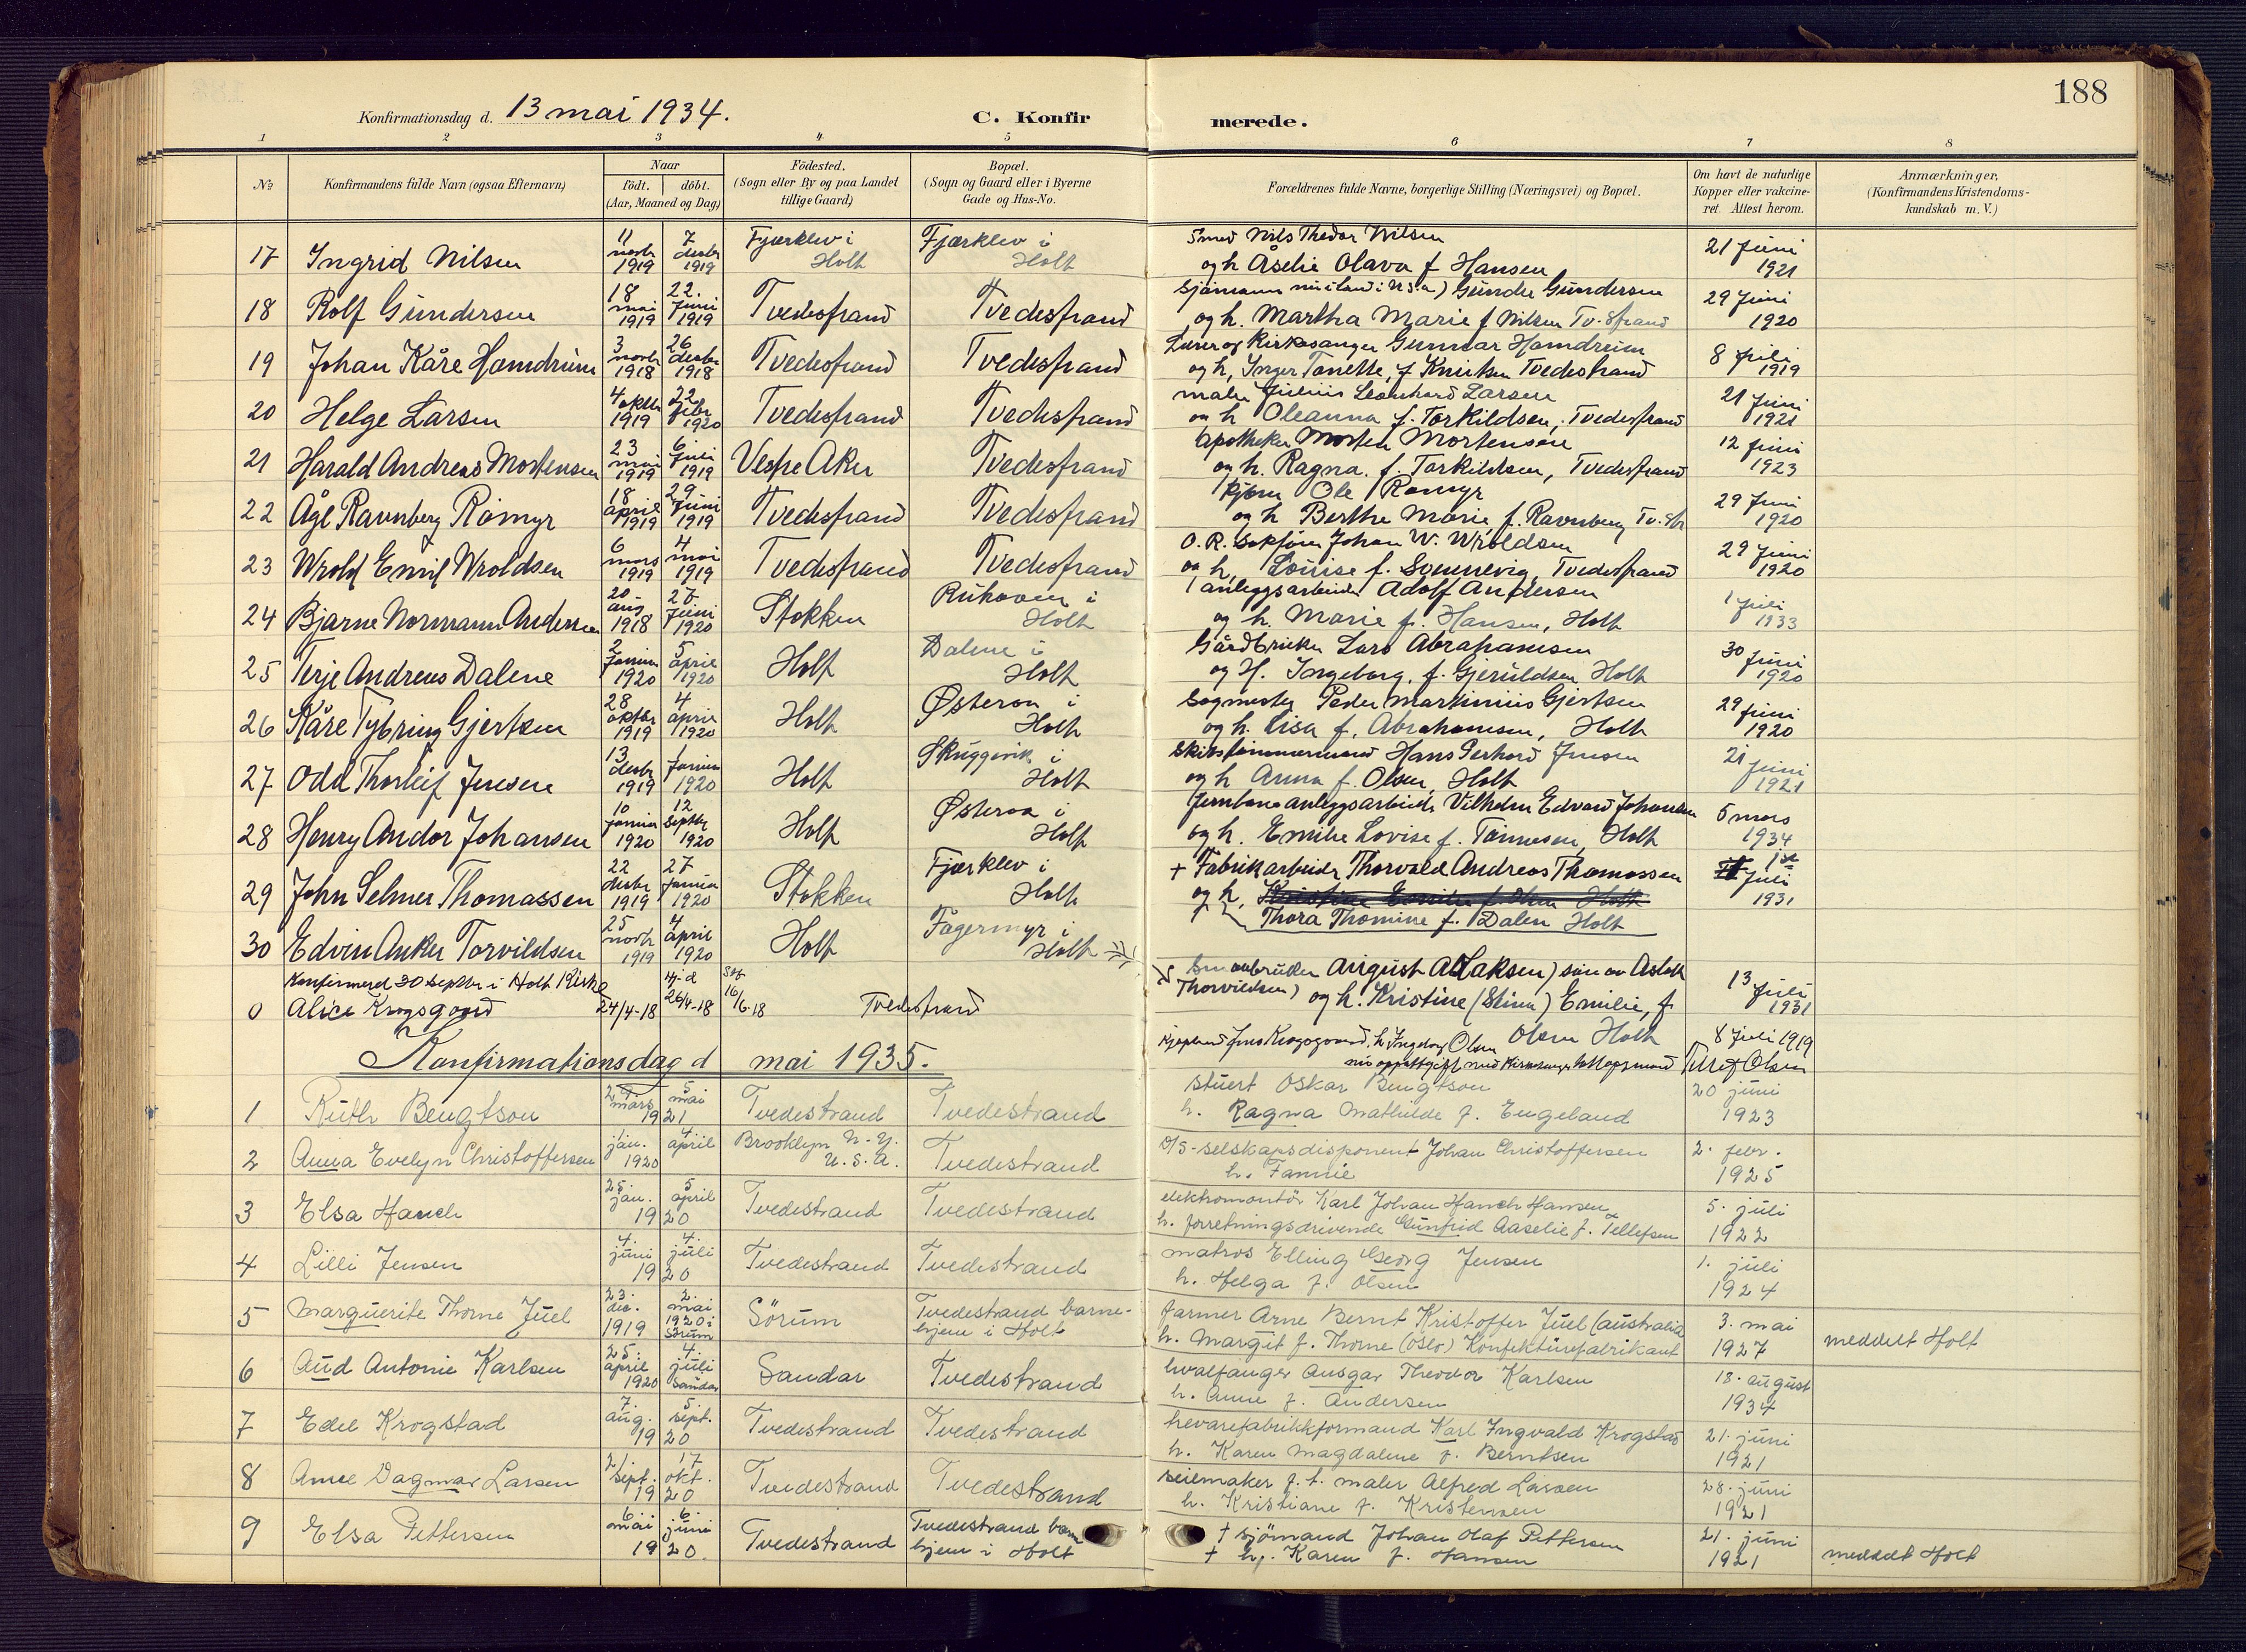 188
Konfirmationsdag d. 13 mai 1934. C. Konfirmerede.
1 2 3 4 5 6 7 8
No Konfirmandens fulde Navn (ogsaa Efternavn) Naar født. døbt. (Aar, Maaned og Dag) Födested. (Sogn eller By og paa Landet tillige Gaard) Bopæl. (Sogn og Gaard eller i Byerne Gade og Hus-No. Forældrenes fulde Navne, borgerlige Stilling (Næringsvei) og Bopæl. Om havt de naturlige Kopper eller vakcineret. Attest herom. Anmærkninger, (Konfirmandens Kristendomskundskab m. V.)
17 Ingrid Nilsen 11 novbr 1919 7 desbr 1919 Fjærklev i Holt Fjærklev i Holt Smed Nils Thedor Nilsen og h Åselie Olava f Hansen 21 Juni 1921
18 Rolf Gundersen 18 mai 1919 22. Juni 1919 Tvedestrand Tvedestrand Sjömann Gunder Gundersen og h. Martha Marie f Nilsen Tv.strand 29 Juni 1920
19 Johan Kåre Hamdrum 3 novbr 1918 26 desbr 1918 Tvedestrand Tvedestrand Lærer og Kirkesanger Gunnar Hamdrum og h, Inger Tonette, f Knutsen Tvedestrand 8 Juli 1919
20 Helge Larsen 4 oktbr 1919 22 febr 1920 Tvedestrand Tvedestrand maler Julius Leonhard Larsen og h Oleanna f. Torkildsen, Tvedestrand 21 Juni 1921
21 Harald Andreas Mortensen 23 mai 1919 6 Juli 1919 Vestre Aker Tvedestrand Apotheker Morten Mortensen og h. Ragna. f. Torkildsen, Tvedestrand 12 Juni 1923
22 Åge Ravnberg Römyr 18 april 1919 29 Juni 1919 Tvedestrand Tvedestrand Ole Romyr og h Berthe Marie f. Ravnberg Tv.str 29 Juni 1920
23 Wrold Emil Wroldsen 6 mars 1919 4 mai 1919 Tvedestrand Tvedestrand O. R. Sakförer Johan W. Wroldsen og h, Louise f. Sonnevig, Tvedestrand 29 Juni 1920
24 Bjarne Normann Andersen 20 aug 1918 27 Juni 1920 Stokken Holt anleggsarbeider Adolf Andersen og h. Marie f. Hansen, Holt 1 Juli 1933
25 Terje Andreas Dalene 2 Januar 1920 5 april 1920 Holt Dalene i Holt Gårdbruker Lars Abrahamsen og H. Ingeborg, f. Gjeruldsen Holt 30 Juni 1920
26 Kåre Tybring Gjertsen 28 oktbr 1919 4 april 1920 Holt Østeroa i Holt Sagmester Peder Markinius Gjertsen og h. Lisa f. Abrahamsen, Holt 29 Juni 1920
27 Odd Thorleif Jensen 13 desbr 1919 1 Januar 1920 Holt Skuggevik i Holt Skibstömmermand Hans Gerhard Jensen og h Anna f. Olsen, Holt 21 Juni 1921
28 Henry Andor Johansen 10 Januar 1920 12 Septbr 1920 Holt Østeroa i Holt Jernbaneanleggsarbeider Vilhelm Edvard Johansen og h. Emilie Lovise f. Tönnesen, Holt 6 mars 1934
29 John Selmer Thomassen 22 desbr 1919 27 Januar 1920 Stokken Fjærklev i Holt + Fabrikarbeider Thorvald Andreas Thomassen og h, Thora Thomine f. Dalen Holt 1st Juli 1931
30 Edvin Anker Torvildsen 25 novbr 1919 4 april 1920 Holt Fagermyr i Holt Småbruker August Aslaksen) sön av Aslak Thorvildsen) og h. Kristine (Stina) Emilie, f. Olsen Holt 13 Juli 1931
Konfirmerd 30 Septbr i Holt Kirke
0 Alice Krogsgaard 24/4-18 Hj-d 26/4-18 Stf 16/6-18 Tvedestrand Jens Krogsgaard, h Ingeborg Olsen 8 Juli 1919
Konfirmationsdag d mai 1935.
1 Ruth Bengtson 2 mars 5 mai 1921 Tvedestrand Tvedestrand Stuert Oskar Bengtson h. Ragna Mathilde f. Engeland 20 juni 1923
2 Anna Evelyn Christoffersen 1. jan. 4. april 1920 Brooklyn N-Y. U.S.A. Tvedestrand D/S-selskapsdisponent Johan Christoffersen h. Fannie 2. febr. 1925
3 Elsa Hauch 25. jan. 5 april 1920 Tvedestrand Tvedestrand elektromontör Karl Johan Hauch Hansen h. forretningsdrivende Gunfrid Aaselie f. Tellefsen 5. juli 1922
4 Lilli Jensen 4. juni 4. juli 1920 Tvedestrand Tvedestrand matros Elling Georg Jensen h. Helga f. Olsen 1. juli 1924
5 Marguerite Thorne Juel 23. dec. 1919 2. mai 1920 i Sörum Sörum Tvedestrand barnehjem i Holt farmer Arne Bernt Kristoffer Juel (australia) h. Margit f. Thorne (Oslo) Konfektionsfabrikant 3. mai 1927 meddelt Holt
6 Aud Antonie Karlsen 25. april 1920 4. juli Sandar Sandar Tvedestrand hvalfanger Ansgar Theodor Karlsen h. Anne f. Andersen 18. august 1934
7 Edel Krogstad 7. aug. 5. sept. 1920 Tvedestrand Tvedestrand trevarefabrikkformand Karl Ingvald Krogstad h. Karen Magdalene f. Berntsen 21. juni 1921
8 Anne Dagmar Larsen 21. sept. 17 okt. 1920 Tvedestrand Tvedestrand seilmaker f. t. maler Alfred Larsen h. Kristiane f. Kristensen 28. juni 1921
9 Elsa Pettersen 6. mai 6. juni 1920. Tvedestrand Tvedestrand barnehjem i Holt + sjömand Johan Olaf Pettersen + h. Karen f. Hansen 21. juni 1921 meddelt Holt